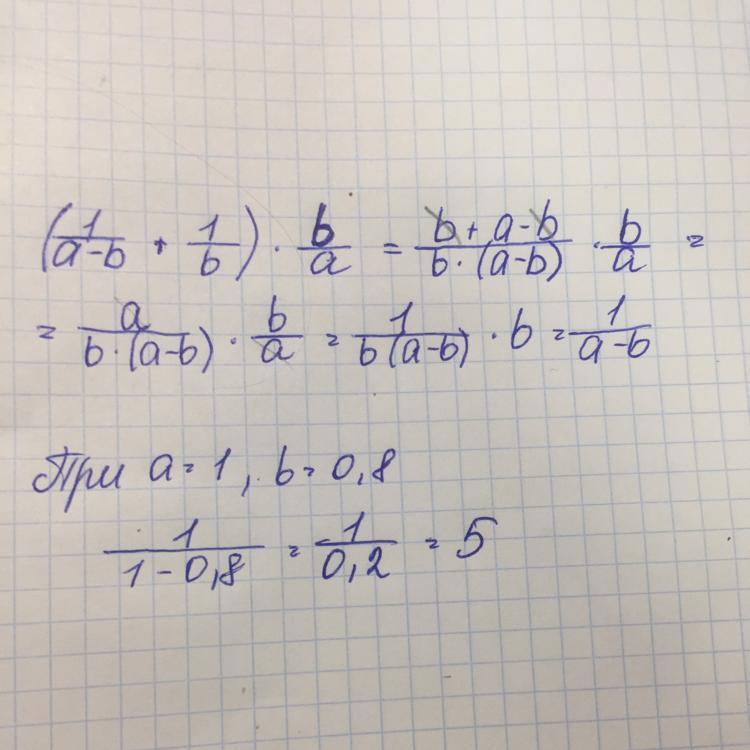 (1/(a-b) + 1/b) · b/a = (b+a-b)/(b·(a-b)) · b/a =
= a/(b·(a-b)) · b/a = 1/(b(a-b)) · b = 1/(a-b)
При a=1, b=0,8
1/(1-0,8) = 1/0,2 = 5